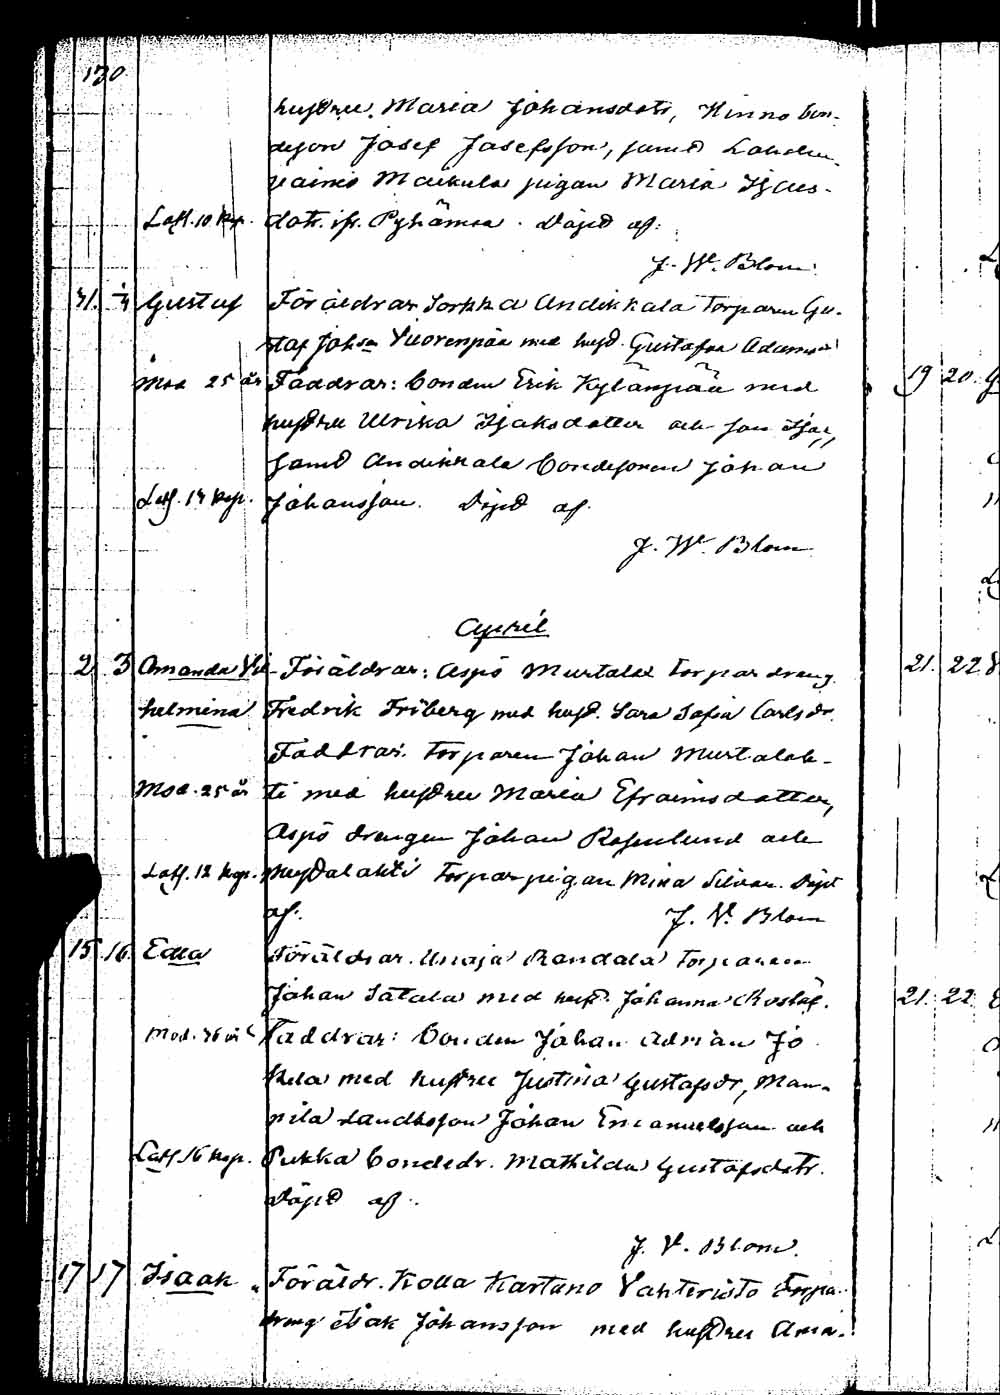 130
hustru Maria Johansdotr, Hinno bon-
deson Josef Josefsson, samt
Maria Isaks-
Laff. 10 kop. dotr. ifr. Pyhämaa. Döpt af:
J. W. Blom.
31. 4 Gustaf Föräldrar Sorkka Andikkala Torparen Gu-
staf Johsn Vuorenpää med hust. Gustafva Adamsdr
Mod. 25 år Faddrar: bonden Erik Kylänpää med
hustru Ulrika Isaksdotter och son Isac,
samt Andikkala bondesonen Johan
Laff. 14 kop. Johansson. Döpt af.
J. W. Blom
April
2 3 Amanda Vil- Föräldrar: Aspö Murtalax torpar dreng
helmina Fredrik Friberg med hust. Sara Sofia Carlsdr.
Faddrar: Torparen Johan Murtalah-
Mod. 25 år ti med hustru Maria Efraimsdotter,
Aspö drengen Johan Rosenlund och
Laff. 12 kop. torparpigan Mina Silvan. Döpt
af. J. V. Blom
15. 16. Edla Föräldrar. Unaja Randala torparen
Johan Satala med hust. Johanna
Mod. 36 år Faddrar: bonden Johan Adrian Jo-
kela med hustru Justina Gustafsdr, Man-
nila landbosson Johan Emanuelsson och
Laff. 16 kop. Pukka bondedr. Mathilda Gustafsdotr.
Döpt af.
J. V. Blom.
17 17 Isaak Föräldr. Kolla Kartano Vahteristo Torpa-
dreng Isak Johansson med hustru Anna-
19 20.
21. 22
21. 22